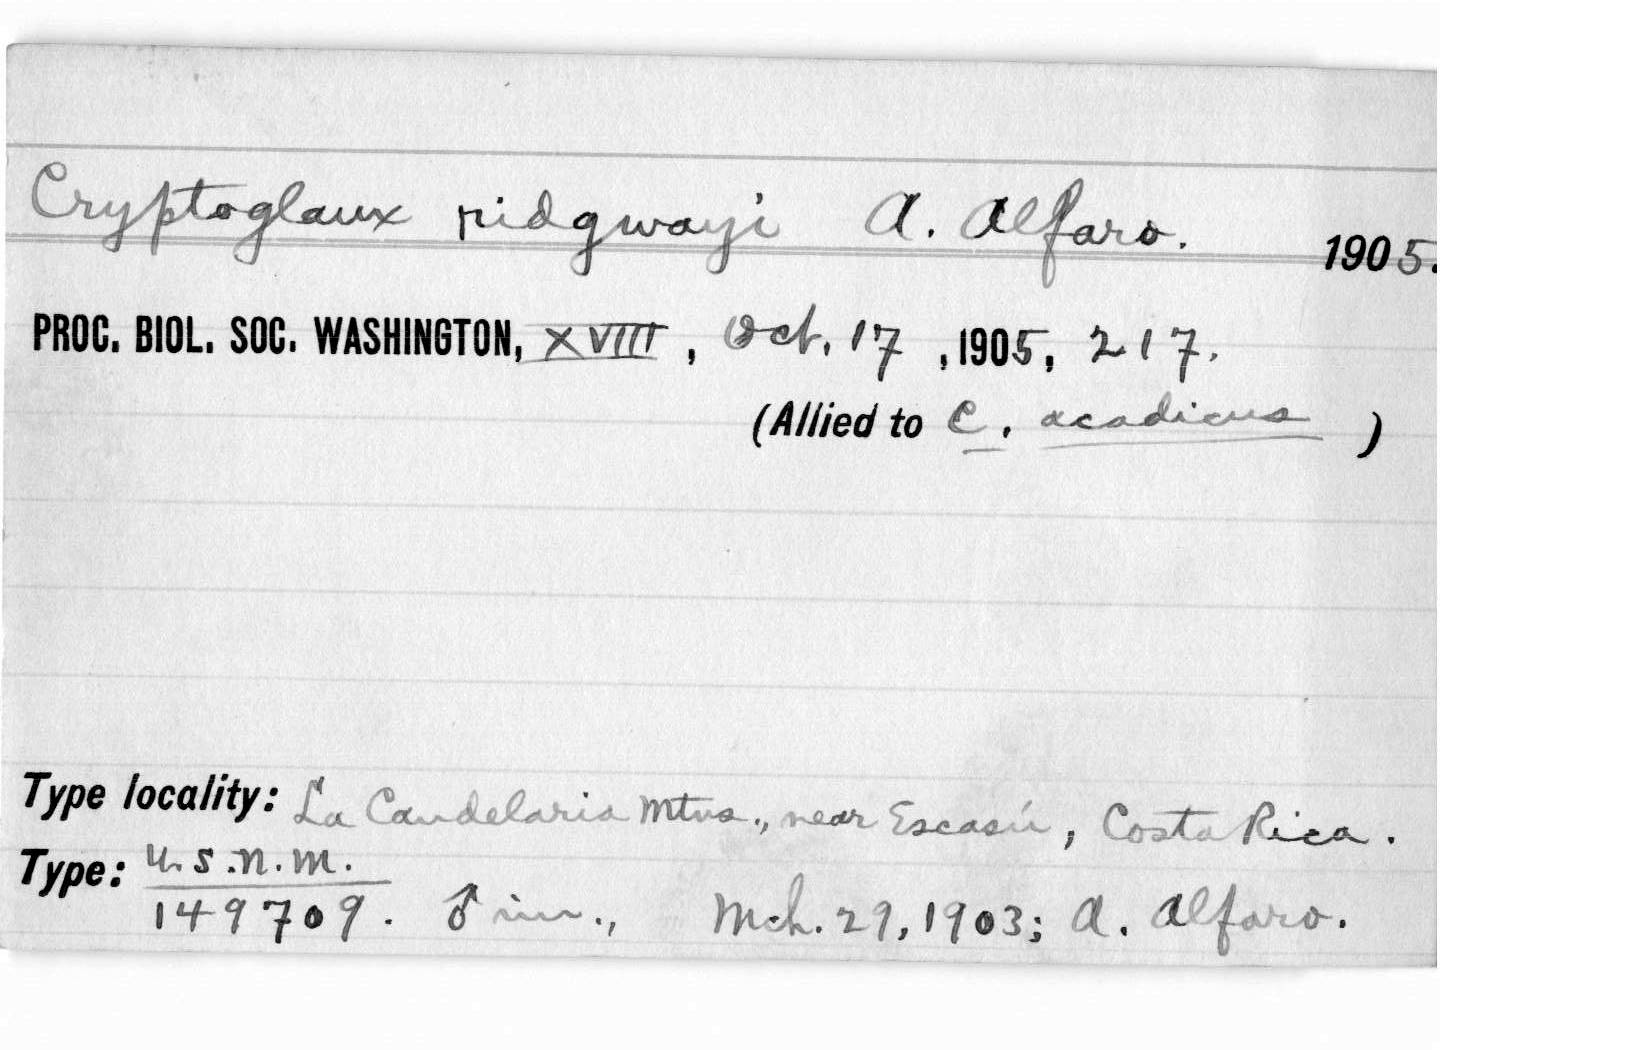 Cryptoglaux ridgwayi A. Alfaro. 1905.
PROC. BIOL. SOC. WASHINGTON, XVIII, Oct. 17, 1905, 217.
(Allied to C. acadicus)
Type locality: La Candelaria Mtns., near Escasú, Costa Rica.
Type: U.S.N.M.
149709. ♂ im., Mch. 29, 1903; A. Alfaro.